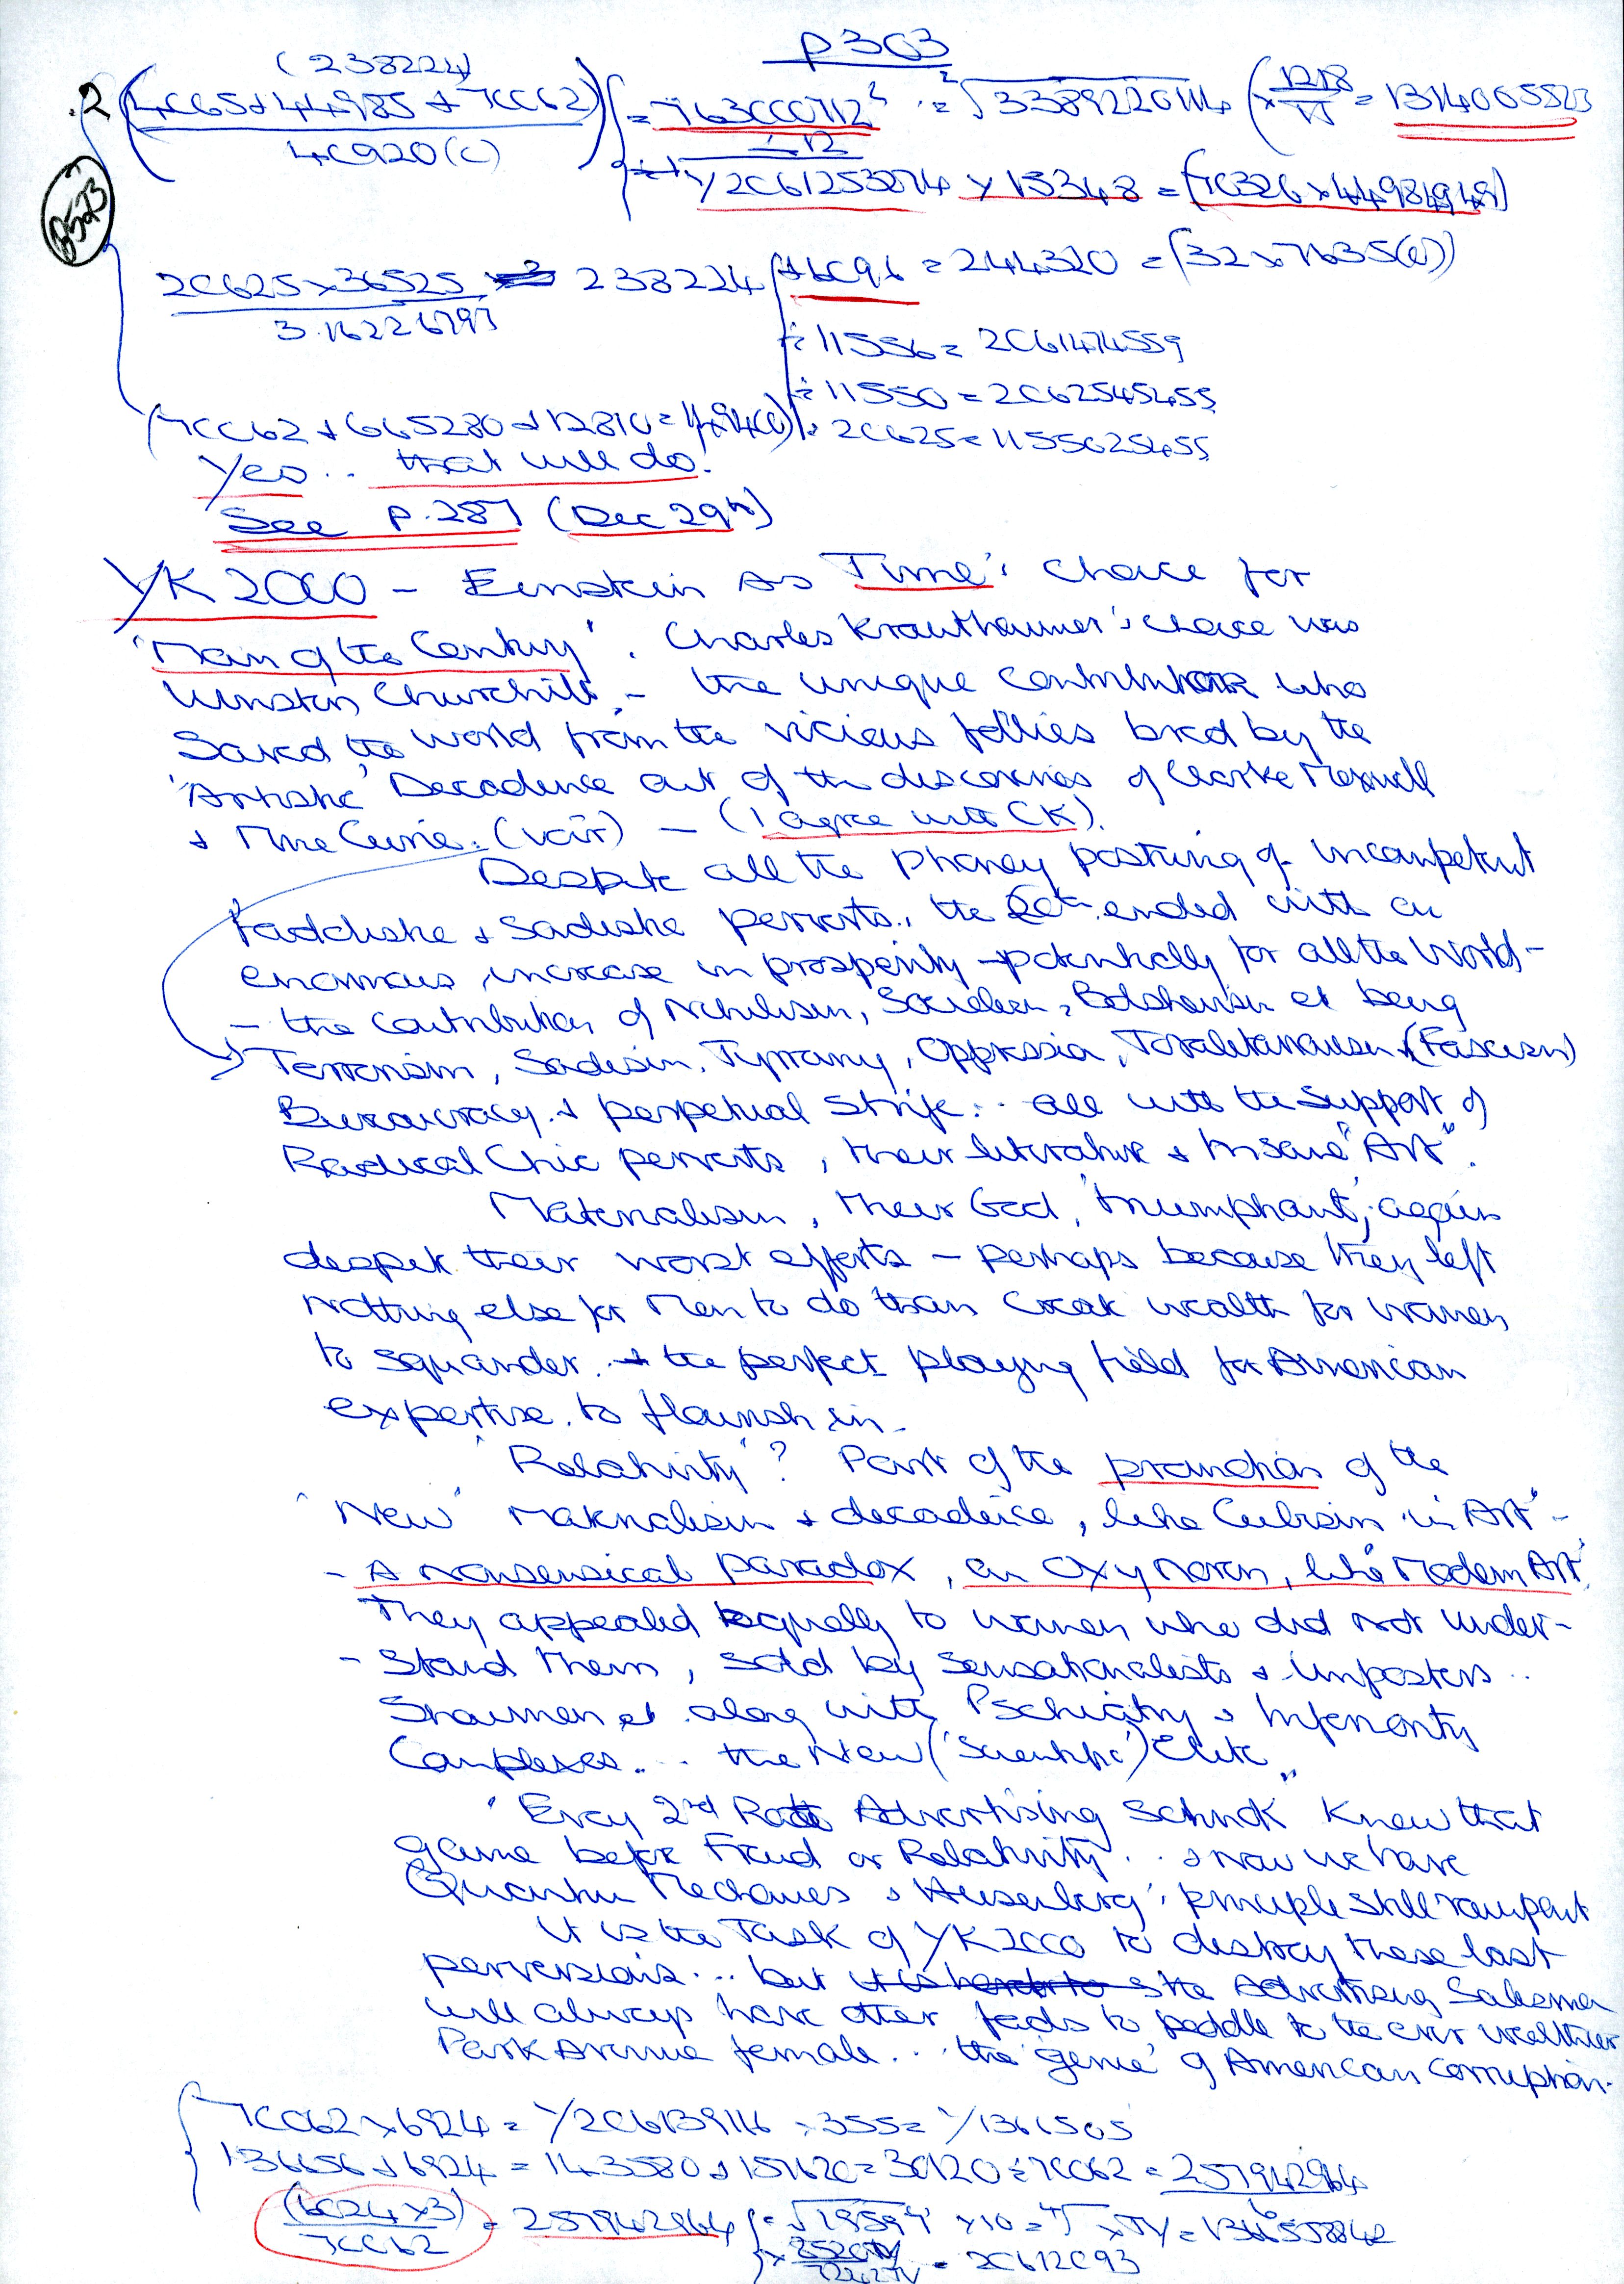 p303
(238224)
.2 (4065+44985+70062) = 763000712² = ²√3389220114 (× 1218 = 1314065523
40920(c)
8523
20625×36525 238224 +6096 = 244320 = (32×7635(0))
3.16226797
÷11556 = 2061474559
÷11550 = 2062545455
÷ 20625 = 1155025455
Yes .. that will do.
See p.287 (Dec 29th)
YK2000 – Einstein as Time's choice for
'Man of the Century'. Charles Krauthammer's choice was
Winston Churchill, – the unique contributor who
Saved the World from the vicious follies bred by the
'Artistic' Decadence out of the discoveries of Clarke Maxwell
+ Mme Curie. (voir) — (I agree with CK).
Despite all the Phoney posturing of incompetent
faddiste + Sadiste perverts.. the 20th ended with an
enormous increase in prosperity – potentially for all the World –
– the contribution of Nihilism, Socialism, Bolshevism et being
Terrorism, Sadism, Tyranny, Oppression, Totalitarianism (Fascism)
Bureaucracy + perpetual Strife... all with the Support of
Radical Chic perverts, their literature + Insane "Art".
Materialism, their God, 'triumphant', again
despite their worst efforts – perhaps because they left
Nothing else for Men to do than create wealth for women
to squander. + the perfect playing field for American
expertise to flourish in.
'Relativity'? Part of the promotion of the
'New' Materialism + decadence, like Cubism in 'Art' –
– A nonsensical paradox, an Oxymoron, like 'Modern Art'.
They appealed equally to women who did not under-
– stand them, sold by Sensationalists + Imposters ..
Shaumen et along with Pschiatry + Inferiority
Complexes... the New ('Scientific') Elite"
'Every 2nd Rate Advertising Schnok Knew that
game before Fraud or Relativity... + now we have
Quantum Mechanics + Heisenberg's principle still rampant
It is the Task of YK2000 to destroy these last
perversions... but the Advertising Salesmen
will always have other fads to peddle to the ever wealthier
Park Avenue female... the 'genie' of American corruption.
70062×6924 = 1/206139116 ×355 = 1/1361505
136656+6924 = 143580+157620 = 30120÷70062 = 257942964
(6024×3) = 257942964
70062
= 20612093